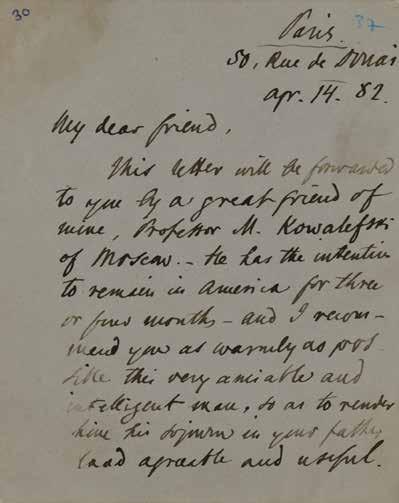 30
37
Paris.
50, Rue de Douai
Apr. 14. 82.
My dear friend,
This letter will be forwarded
to you by a great friend of
mine, Professor M. Kowalefski
of Moscow. – He has the intention
to remain in America for three
or four months – and I recom-
mend you as warmly as pos-
sible this very amiable and
intelligent man, so as to render
him his sojourn in your father
land agreable and useful.